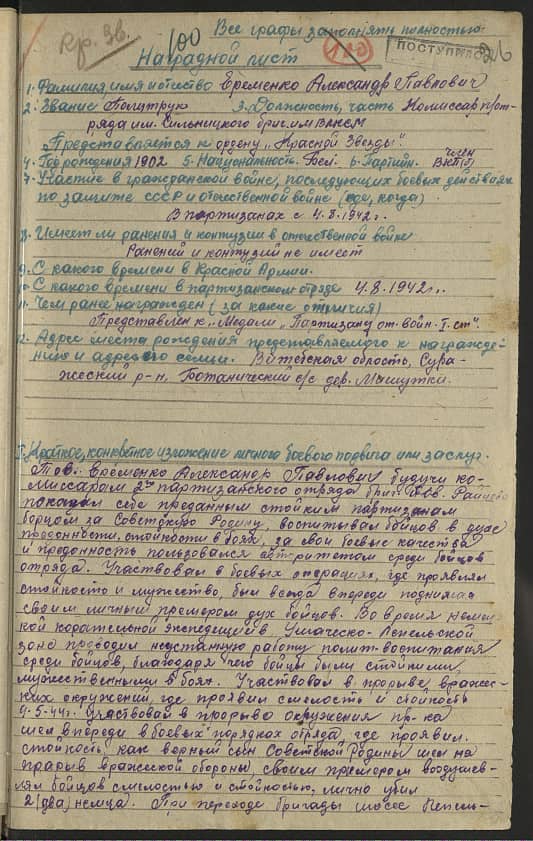 Все графы заполнять полностью
Кр. Зв.
100
ПОСТУПИЛО
Наградной лист
1. Фамилия, имя и отчество Еременко Александр Павлович
2. Звание Политрук 3. Должность, часть Комиссар п/от-
ряда им. Сильницкого бриг. им ВЛКСМ
Представляется к ордену "Красной Звезды".
4. Год рождения 1902 5. Национальность Бел. 6. Партийн. член ВКП(б)
7. Участие в гражданской войне, последующих боевых действиях
по защите СССР и отечественной войне (где, когда)
В партизанах с 4.8.1942 г.
8. Имеет ли ранения и контузии в отечественной войне
Ранений и контузий не имеет
9. С какого времени в Красной Армии.
10. С какого времени в партизанском отряде 4.8.1942 г.
11. Чем ранее награжден (за какие отличия)
Представлен к "Медали "Партизану от. войн. I. ст".
12. Адрес места рождения представляемого к награжде-
нию и адрес его семьи. Витебская область, Сура-
жеский р-н, Ботанический с/с дер. Мишутки.
I. Краткое, конкретное изложение личного боевого подвига или заслуг.
Тов. Еременко Александр Павлович будучи ко-
миссаром 2го партизанского отряда бриг. тов. Райцева
показал себя преданным стойким партизанам
борцом за Советскую Родину, воспитывал бойцов в духе
преданности, стойкости в боях, за свои боевые качества
и преданность пользовался авторитетом среди бойцов
отряда. Участвовал в боевых операциях, где проявлял
стойкость и мужество, был всегда впереди поднимая
своим личным примером дух бойцов. Во время немец-
кой карательной экспедиции в Ушаческо-Лепельской
зоне проводил неустанную работу полит-воспитания
среди бойцов, благодаря чего бойцы были стойкими,
мужественными в боях. Участвовал в прорыве вражес-
ких окружений, где проявил смелость и стойкость
4-5-44 г. Участвовал в прорыве окружения пр-ка
шел впереди в боевых порядках отряда, где проявил
стойкость как верный сын Советской Родины шел на
прарыв вражеской обороны, своим примером воодушев-
лял бойцов смелостью и стойкостью, лично убил
2 (два) немца. При переходе бригады шоссе Лепель-